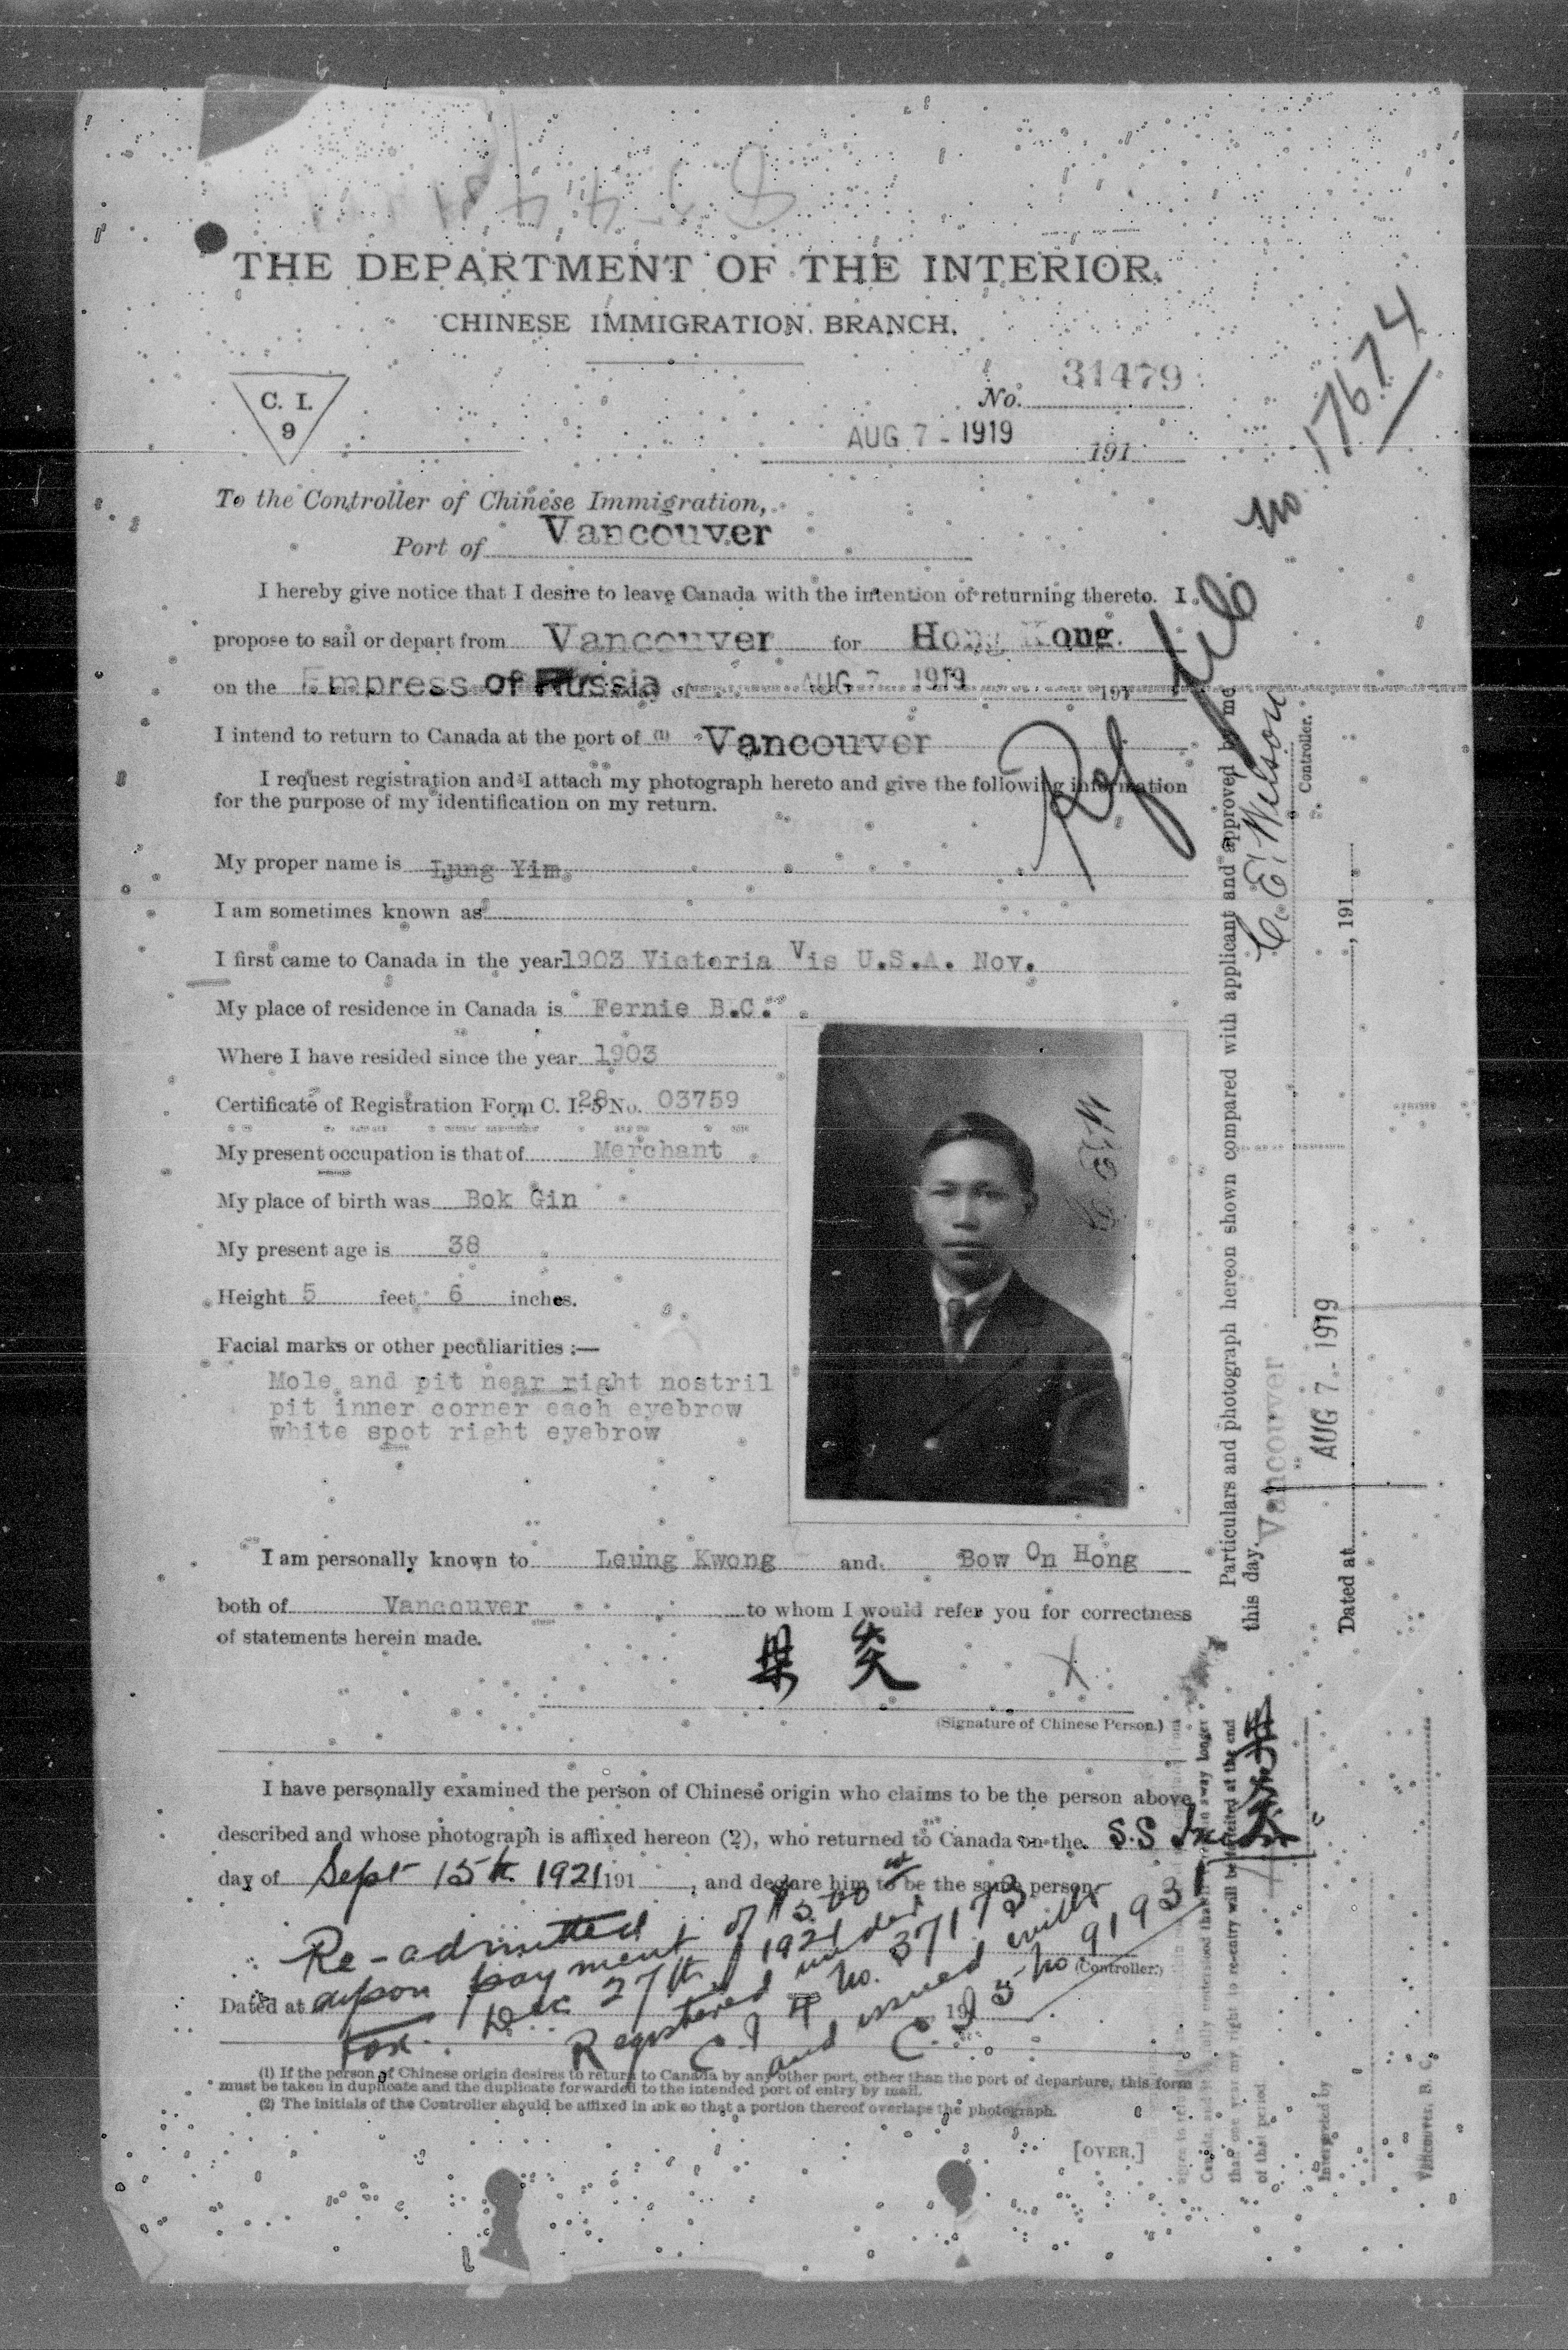 THE DEPARTMENT OF THE INTERIOR.
CHINESE IMMIGRATION BRANCH.
C. I.
9
No. 31479
AUG 7 - 1919 191
To the Controller of Chinese Immigration,
Port of Vancouver
No 17674
Ref file
I hereby give notice that I desire to leave Canada with the intention of returning thereto. I
propose to sail or depart from Vancouver for Hong Kong.
on the Empress of Russia day of AUG 7 1919 191
I intend to return to Canada at the port of (1) Vancouver
I request registration and I attach my photograph hereto and give the following information
for the purpose of my identification on my return.
My proper name is Lung Yim
I am sometimes known as
I first came to Canada in the year 1903 Victoria Vis U.S.A. Nov.
My place of residence in Canada is Fernie B.C.
Where I have resided since the year 1903
Certificate of Registration Form C. I. 5 28 No. 03759
My present occupation is that of Merchant
My place of birth was Bok Gin
My present age is 38
Height 5 feet 6 inches.
Facial marks or other peculiarities :—
Mole and pit near right nostril
pit inner corner each eyebrow
white spot right eyebrow
I am personally known to Leung Kwong and Bow On Hong
both of Vancouver to whom I would refer you for correctness
of statements herein made.
梁 炎 X
(Signature of Chinese Person.)
I have personally examined the person of Chinese origin who claims to be the person above
described and whose photograph is affixed hereon (2), who returned to Canada on the S.S
day of Sept 15th 1921 191 , and declare him to be the same person
Re-admitted
upon payment of $500
Tax. Dec 27th 1921
Registered under
C I 4 No. 37173
and issued with
C I 5 No 91931
(Controller.)
Dated at 191
(1) If the person of Chinese origin desires to return to Canada by any other port, other than the port of departure, this form
must be taken in duplicate and the duplicate forwarded to the intended port of entry by mail.
(2) The initials of the Controller should be affixed in ink so that a portion thereof overlaps the photograph.
[OVER.]
Particulars and photograph hereon shown compared with applicant and approved by me
this day. Vancouver
C. E. Wilson
Controller.
AUG 7 - 1919
Dated at , 191
梁炎
away longer
than one year my right to re-entry will be forfeited at the end
of that period.
Interpreted by
Vancouver, B. C.